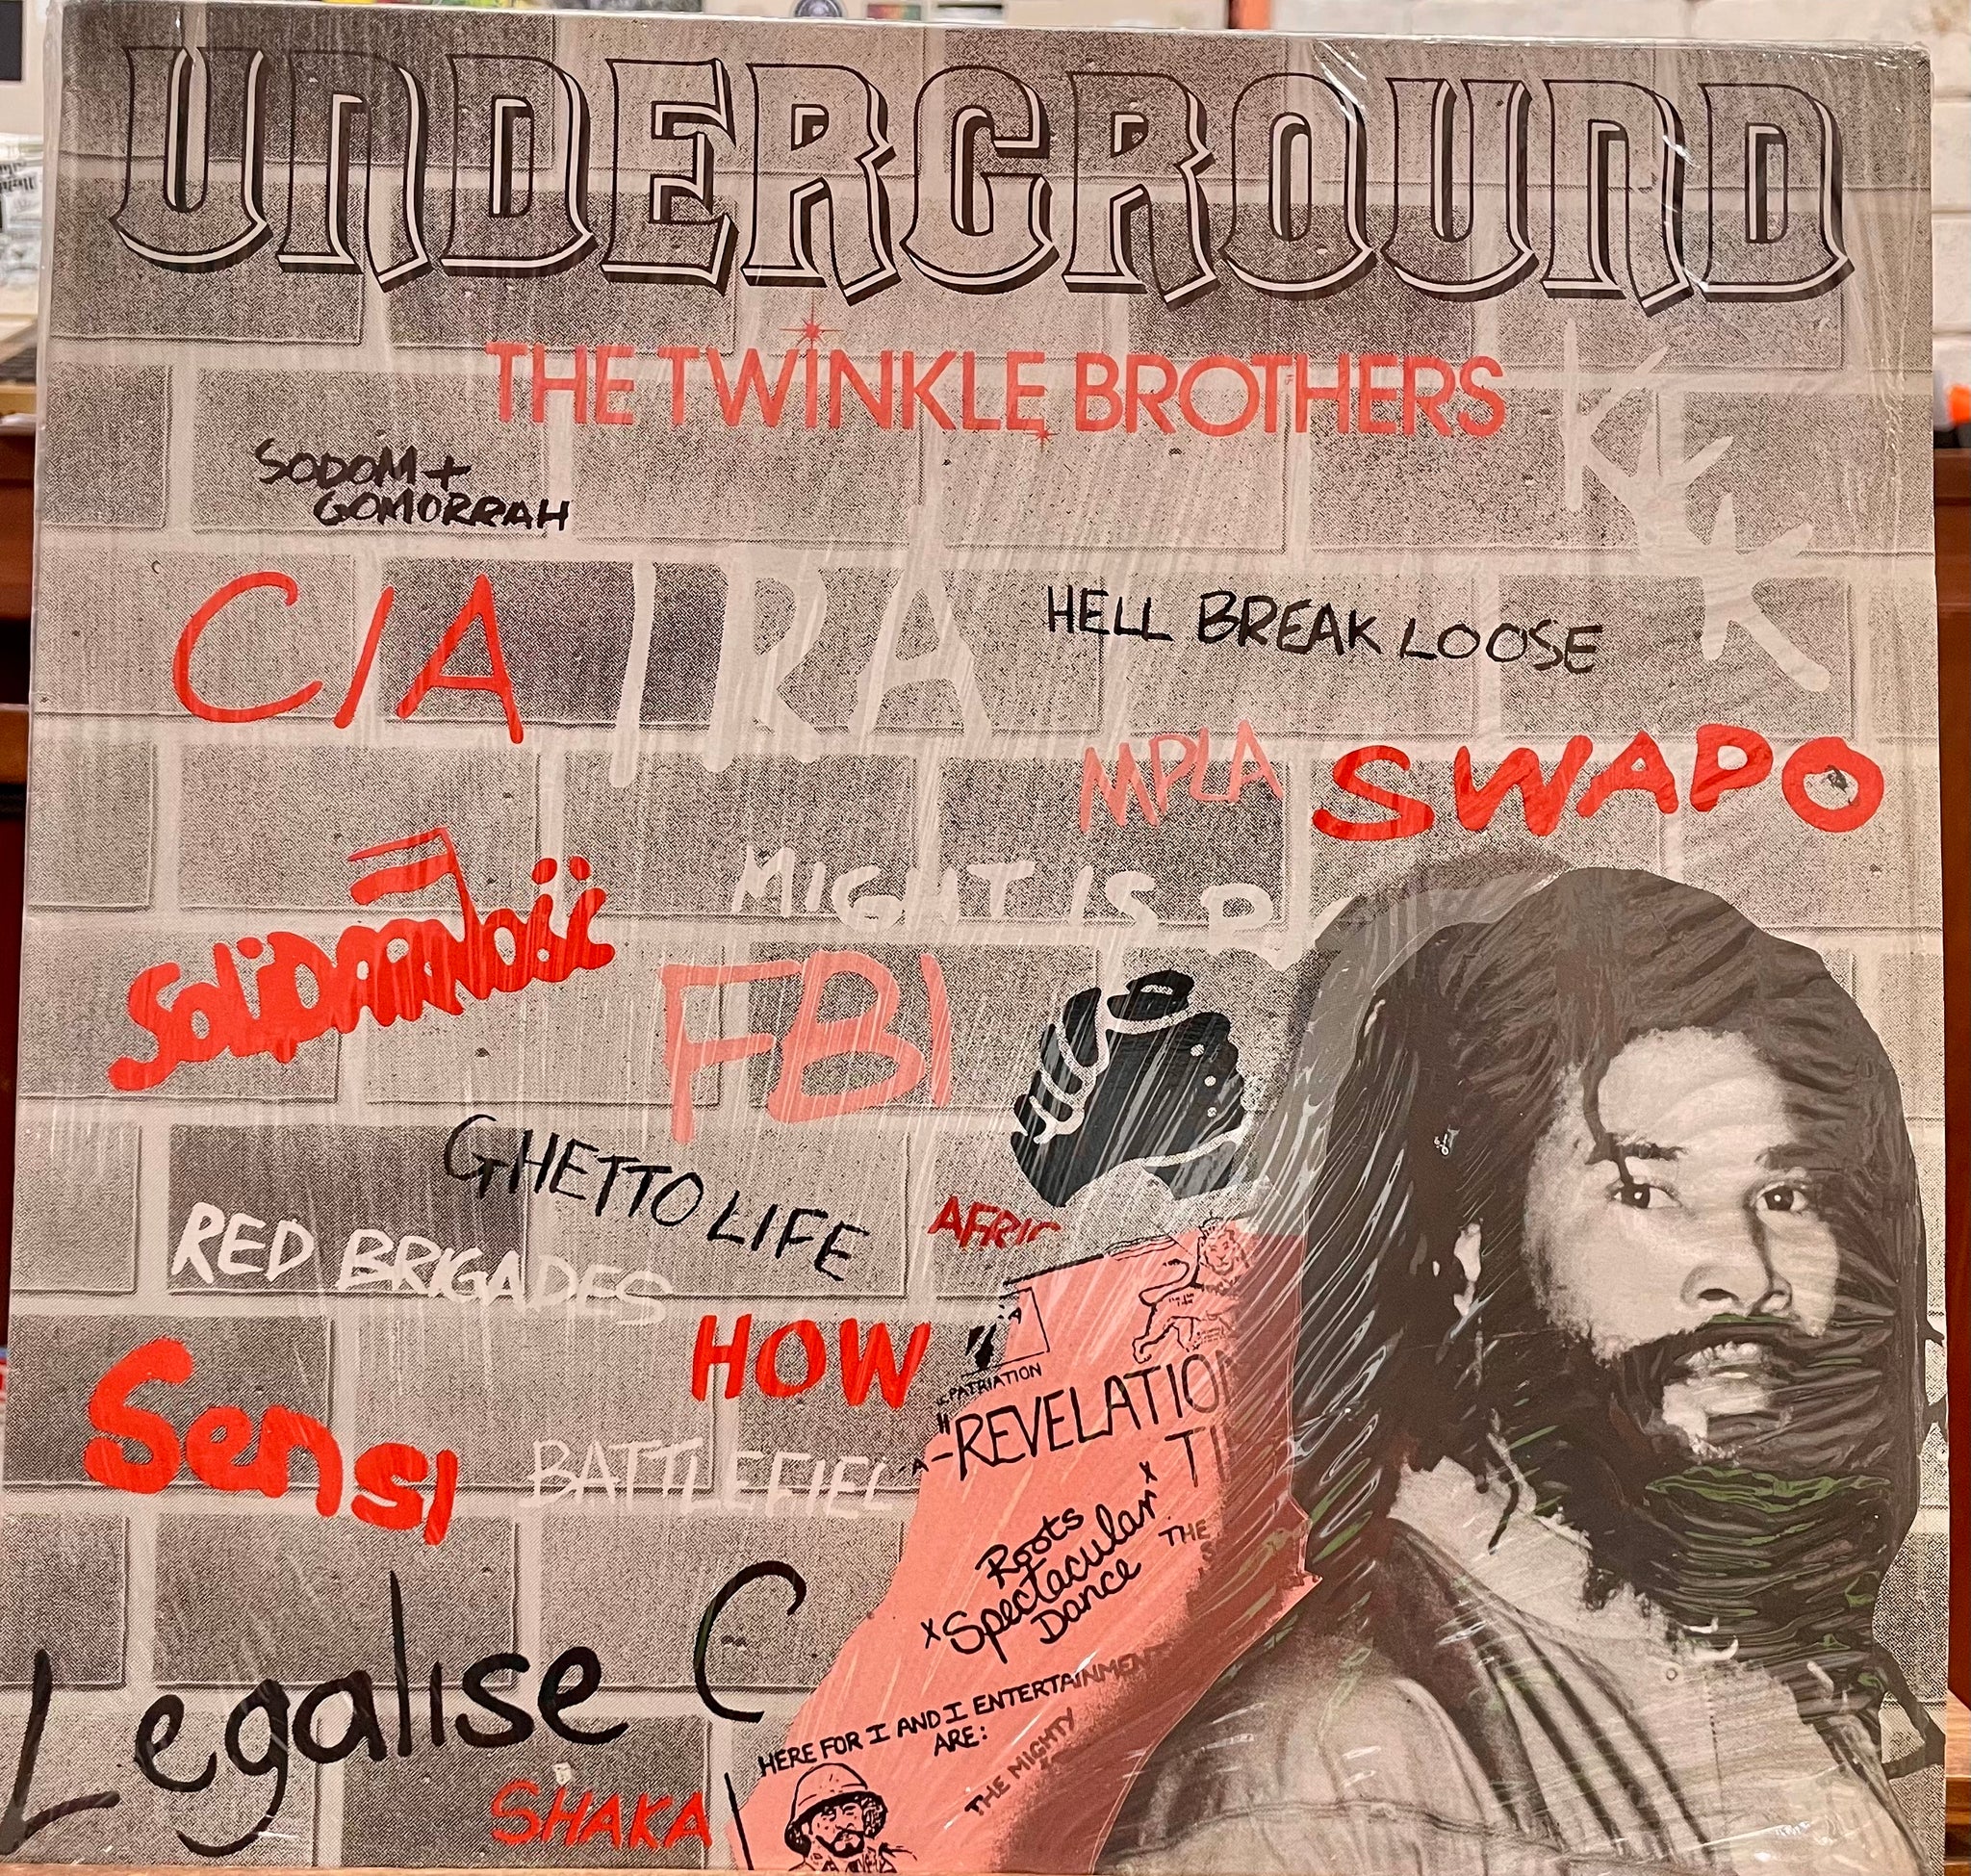 UNDERGROUND
THE TWINKLE BROTHERS
KKK
SODOM +
GOMORRAH
CIA
IRA
HELL BREAK LOOSE
MPLA
SWAPO
SOLIDARNOŚĆ
MIGHT IS R
FBI
GHETTO LIFE
AFRIC
RED BRIGADES
HOW
PATRIATION
REVELATION
TI
SENSI
BATTLEFIEL
-A-
Roots
x Spectacular x
Dance
THE
Legalise C
HERE FOR I AND I ENTERTAINMEN
ARE:
THE MIGHTY
SHAKA